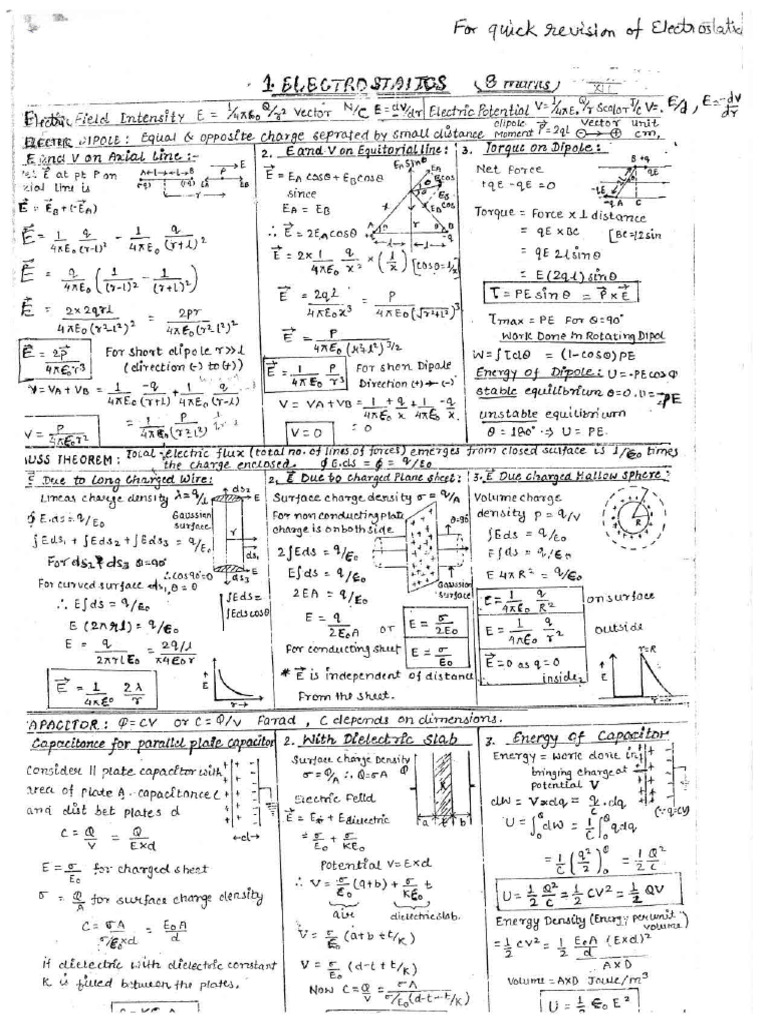 For quick revision of Electrostatic
1. ELECTROSTATICS (8 marks) XII
Electric Field Intensity E = 1/4πε₀ Q/r² vector N/C E = dv/dr Electric Potential V = 1/4πε₀ Q/r Scalar J/C V = E/d, E = -dv/dr
ELECTRIC DIPOLE: Equal & opposite charge seprated by small distance dipole Moment P = 2ql vector unit cm,
E and V on Axial Line :-
Let E at pt P on
axial line is
E = E_B + (-E_A)
E = 1/4πε₀ q/(r-l)² - 1/4πε₀ q/(r+l)²
E = q/4πε₀ (1/(r-l)² - 1/(r+l)²)
E = 2×2qrl/4πε₀(r²-l²)² = 2pr/4πε₀(r²-l²)²
E = 2P/4πε₀r³ For short dipole r>>l
(direction (-) to (+))
V = VA + VB = 1/4πε₀ -q/(r+l) + 1/4πε₀ q/(r-l)
V = P/4πε₀r² = 1/4πε₀ P/(r²-l²)
2. E and V on Equitorial line :
E = EA cosθ + EB cosθ
since
EA = EB
∴ E = 2EA cosθ
E = 2× 1/4πε₀ q/x² × (l/x) [cosθ = l/x]
E = 2ql/4πε₀x³ = P/4πε₀(√r²+l²)³
E = P/4πε₀(r²+l²)3/2
E = 1/4πε₀ P/r³ For short Dipole
Direction (+) ← (-)
V = VA + VB = 1/4πε₀ +q/x + 1/4πε₀ -q/x
V = 0 = 0
3. Torque on Dipole :
Net Force
+qE - qE = 0
Torque = Force × ⊥ distance
= qE × BC [BC = l2sin
= qE 2l sinθ
= E(2ql) sinθ
τ = PE sinθ = P × E
τmax = PE For θ = 90°
Work Done in Rotating Dipol
W = ∫τdθ = (1-cosθ)PE
Energy of Dipole: U = -PE cosθ
stable equilibrium θ=0. U = -PE
unstable equilibrium
θ = 180° → U = PE.
USS THEOREM : Total electric flux (total no. of lines of forces) emerges from closed surface is 1/ε₀ times
the charge enclosed. ∮E.ds = ϕ = q/ε₀
E Due to Long Charged Wire:
Linear charge density λ = q/l
∮E.ds = q/ε₀ Gaussian surface
∫Eds₁ + ∫Eds₂ + ∫Eds₃ = q/ε₀
For ds₂ & ds₃ θ=90°
∴ cosθ=0
For curved surface ds₁, θ=0
∴ E∫ds = q/ε₀ ∫Eds = ∫Eds cosθ
E (2πrl) = q/ε₀
E = q/2πrlε₀ = 2q/l/π4ε₀r
E = 1/4πε₀ 2λ/r
2. E Due to charged Plane sheet :
Surface charge density σ = q/A
For non conducting plate
charge is on both side θ=90°
2∫Eds = q/ε₀
E∫ds = q/ε₀
2EA = q/ε₀ Gaussian surface
E = q/2ε₀A or E = σ/2ε₀
For conducting sheet E = σ/ε₀
* E is independent of distance
From the sheet.
3. E Due charged Hallow sphere :
Volume charge
density ρ = q/V
∫Eds = q/ε₀
E∫ds = q/ε₀
E 4πR² = q/ε₀
E = 1/4πε₀ q/R² on surface
E = 1/4πε₀ q/r² outside
E = 0 as q = 0 inside r=R
APACITOR : Q = CV or C = Q/V Farad, C depends on dimensions.
Capacitance for parallel plate capacitor
Consider || plate capacitor with
area of plate A. capacitance C
and dist bet plates d
C = Q/V = Q/E×d
E = σ/ε₀ for charged sheet
σ = Q/A for surface charge density
C = σA/σ/ε₀×d = ε₀A/d
if dielectric with dielectric constant
K is filled between the plates.
2. With Dielectric Slab
Surface charge Density
σ = Q/A ∴ Q = σA
Electric Feild
E = E₀ + E dielectric
= σ/ε₀ + σ/Kε₀
Potential V = E×d
∴ V = σ/ε₀ (a+b) + σ/Kε₀ t
air dielectric slab.
V = σ/ε₀ (a+b+t/K)
V = σ/ε₀ (d-t+t/K)
Now C = Q/V = σA/σ/ε₀(d-t-t/K)
3. Energy of Capacitor
Energy = work done in
bringing charge at
potential V
dW = V×dq = q/C . dq (∵ q=CV)
U = ∫dW = 1/C ∫q dq
= 1/C (q²/2) = 1/2 Q²/C
U = 1/2 Q²/C = 1/2 CV² = 1/2 QV
Energy Density (Energy per unit volume)
= 1/2 CV² = 1/2 ε₀A/d (E×d)²/A×D
Volume = A×D Joule/m³
U = 1/2 ε₀ E²